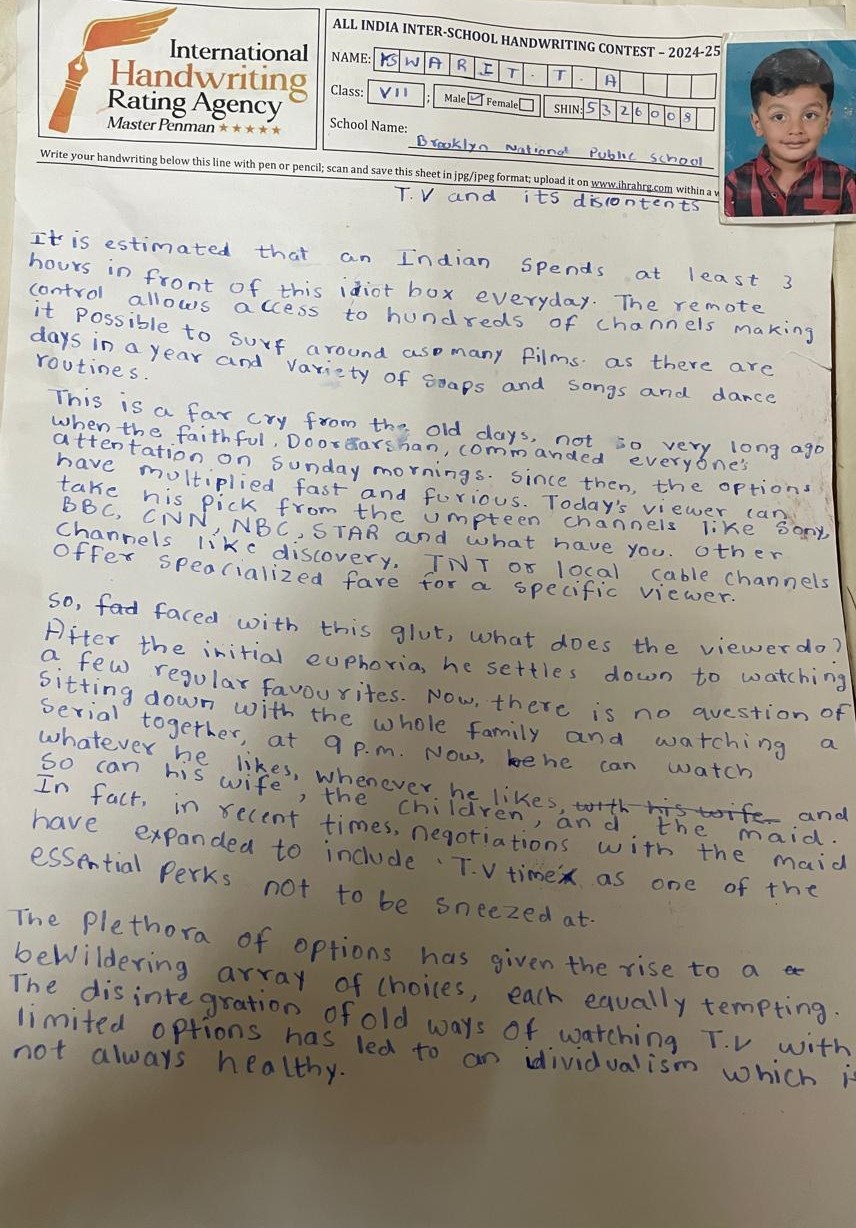 International
Handwriting
Rating Agency
Master Penman ★★★★★
ALL INDIA INTER-SCHOOL HANDWRITING CONTEST – 2024-25
NAME: SWARIT. T. A
Class: VII ; Male ☑ Female ☐ SHIN: 5326008
School Name: Brooklyn National Public School
Write your handwriting below this line with pen or pencil; scan and save this sheet in jpg/jpeg format; upload it on www.ihrahrg.com within a w
T.V and its discontents
It is estimated that an Indian spends at least 3
hours in front of this idiot box everyday. The remote
control allows access to hundreds of channels making
it possible to surf around as many films. as there are
days in a year and variety of soaps and songs and dance
routines.
This is a far cry from the old days, not so very long ago
when the faithful, Doordarshan, commanded everyone's
attentation on Sunday mornings. Since then, the options
have multiplied fast and furious. Today's viewer can
take his pick from the umpteen channels like Sony,
BBC, CNN, NBC, STAR and what have you. Other
channels like discovery, TNT or local cable channels
offer speacialized fare for a specific viewer.
So, fad faced with this glut, what does the viewer do?
After the initial euphoria, he settles down to watching
a few regular favourites. Now, there is no question of
sitting down with the whole family and watching a
serial together, at 9 p.m. Now, he can watch
whatever he likes, whenever he likes, with his wife and
so can his wife, the children, and the maid.
In fact, in recent times, negotiations with the maid
have expanded to include T.V time as one of the
essential perks not to be sneezed at.
The plethora of options has given the rise to a
bewildering array of choices, each equally tempting.
The disintegration of old ways of watching T.V with
limited options has led to an idividualism which is
not always healthy.